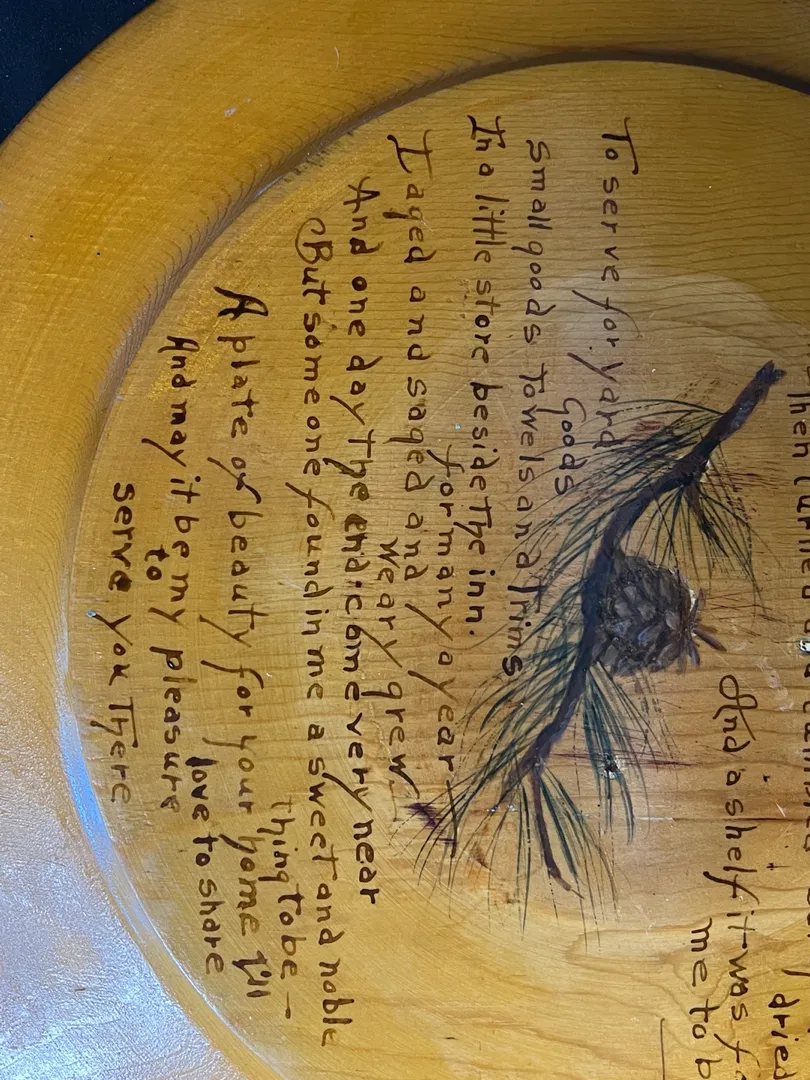 Then
dried
And a shelf it was
me to b
To serve for yard
Goods
Small goods Towels and Trims
In a little store beside The inn.
for many a year —
I aged and saged and
weary grew
And one day The end come very near
But someone found in me a sweet and noble
thing to be —
A plate of beauty for your home I'll
love to share
And may it be my pleasure
to
serve you There